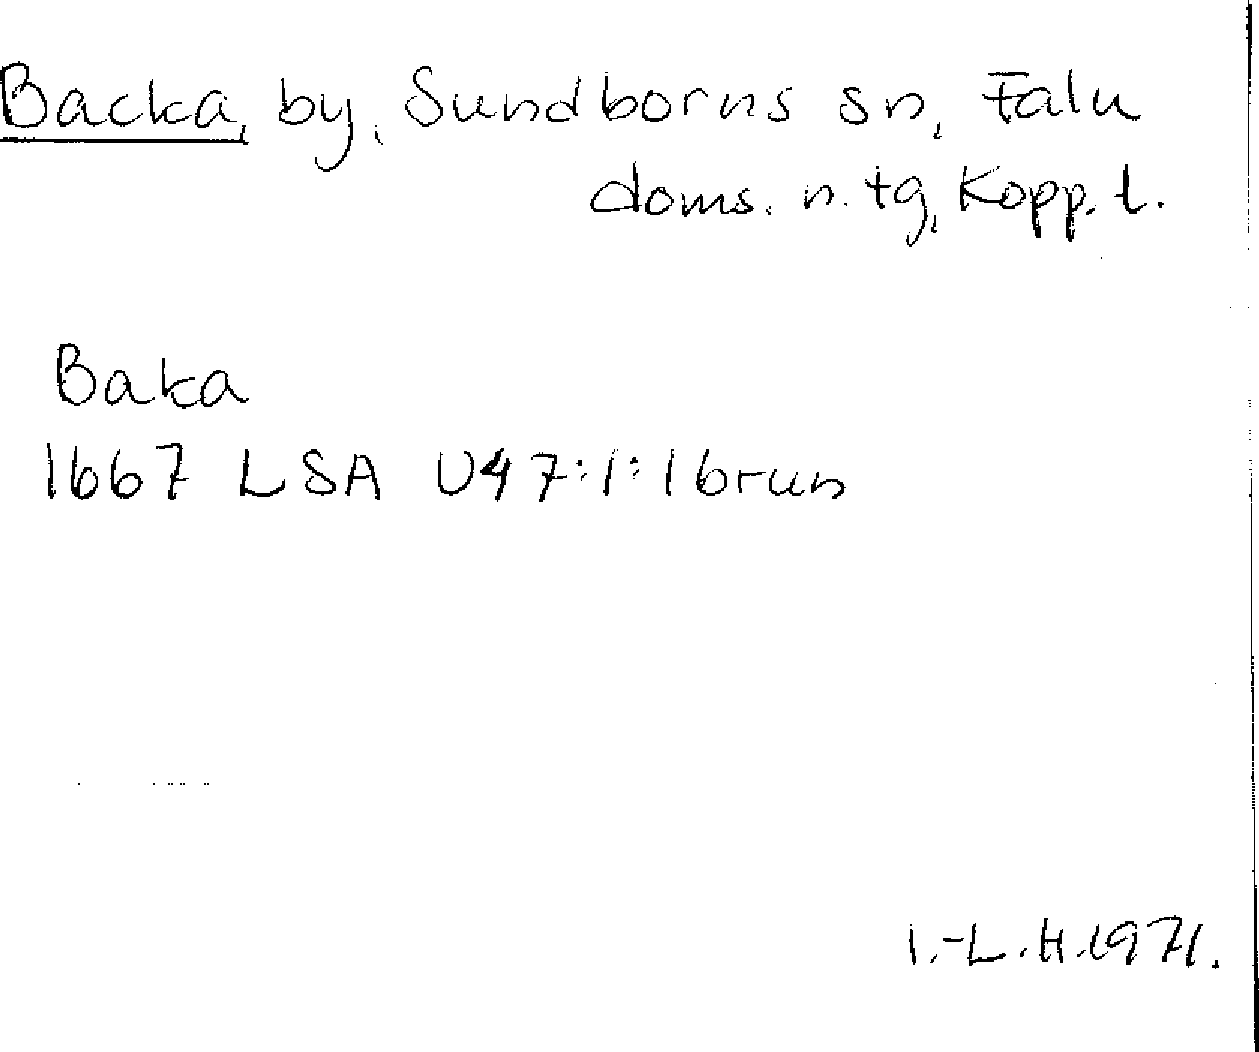 Backa, by, Sundborns sn, Falu
doms. n. tg, Kopp. l.
Baka
1667 LSA U47:1:1 brun
I.-L. H. 1971.